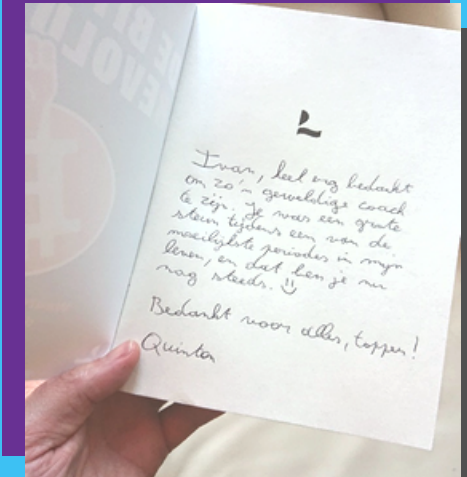 Ivan, heel erg bedankt
om zo'n geweldige coach
te zijn. Je was een grote
steun tijdens een van de
moeilijkste periodes in mijn
leven, en dat ben je nu
nog steeds.
Bedankt voor alles, topper!
Quinten